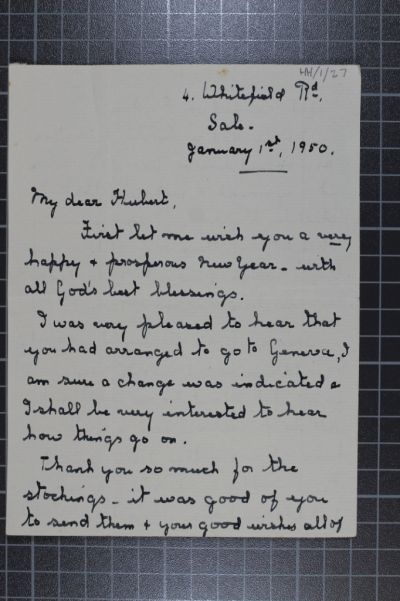 HH/1/27
4. Whitefield Rd.,
Sale.
January 1st, 1950.
My dear Hubert,
First let me wish you a very
happy + prosperous New Year - with
all God's best blessings.
I was very pleased to hear that
you had arranged to go to Geneva, I
am sure a change was indicated &
I shall be very interested to hear
how things go on.
Thank you so much for the
stockings - it was good of you
to send them + your good wishes all of